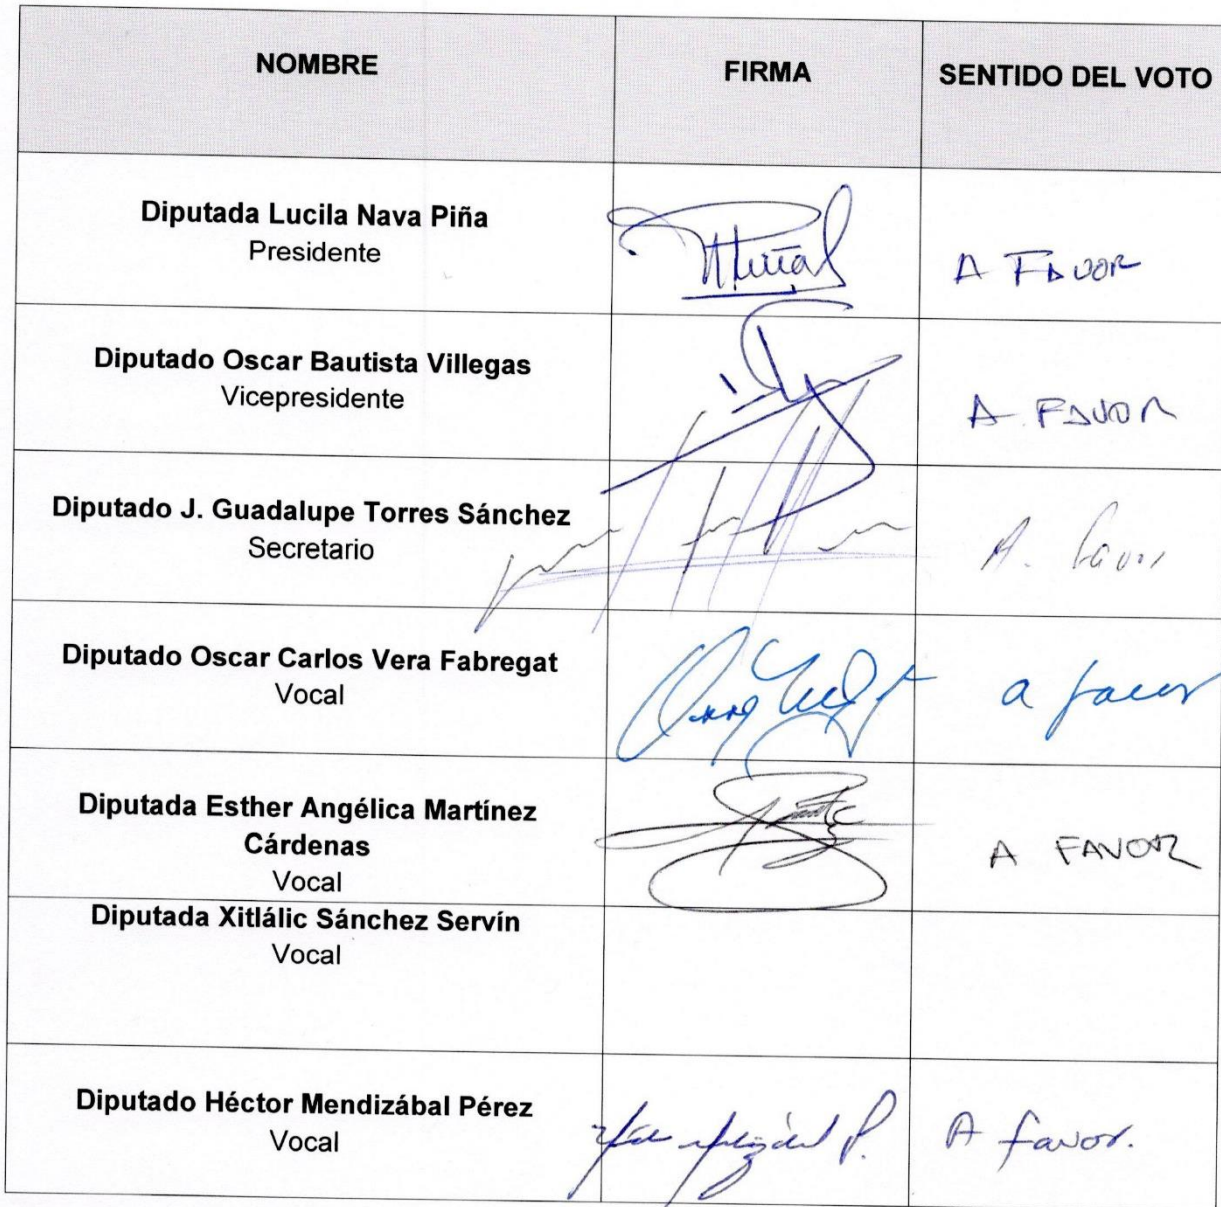 NOMBRE FIRMA SENTIDO DEL VOTO
Diputada Lucila Nava Piña
Presidente
A FAVOR
Diputado Oscar Bautista Villegas
Vicepresidente
A FAVOR
Diputado J. Guadalupe Torres Sánchez
Secretario
A. favor
Diputado Oscar Carlos Vera Fabregat
Vocal
a favor
Diputada Esther Angélica Martínez
Cárdenas
Vocal
A FAVOR
Diputada Xitlálic Sánchez Servín
Vocal
Diputado Héctor Mendizábal Pérez
Vocal
A favor.